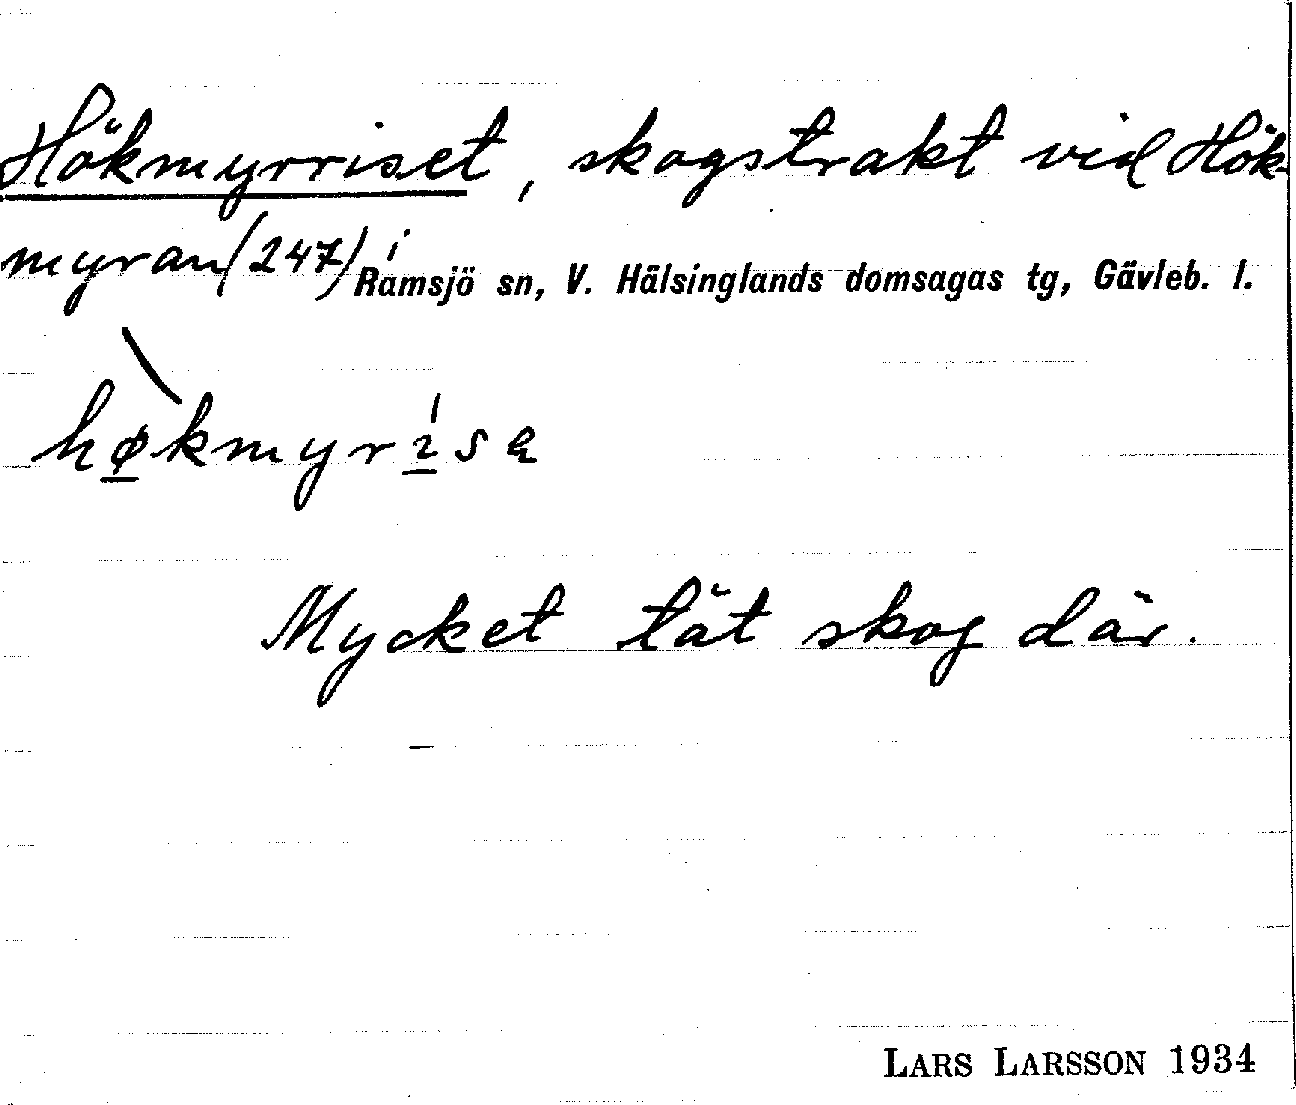 Hökmyrriset, skogstrakt vid Hök-
myran (247) i Ramsjö sn, V. Hälsinglands domsagas tg, Gävleb. l.
hø̲kmyrı̲́sa
Mycket tät skog där.
LARS LARSSON 1934